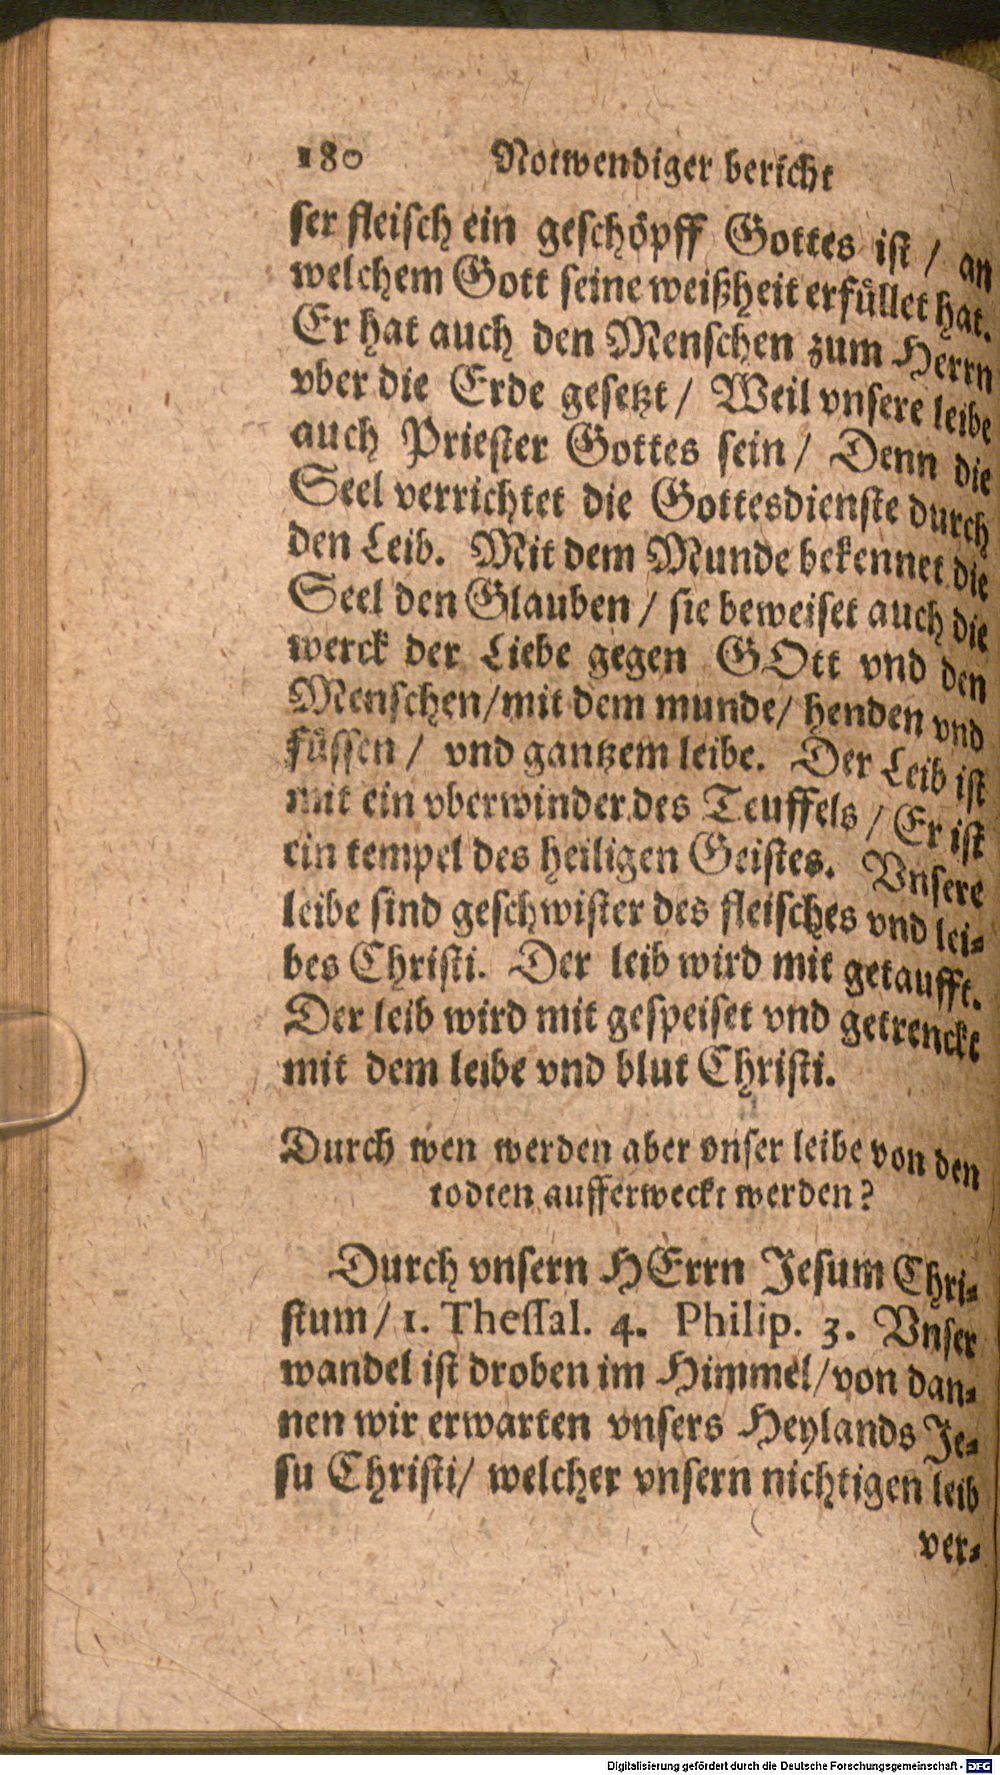 180 Notwendiger bericht
ser fleisch ein geschöpff Gottes ist / an
welchem Gott seine weißheit erfüllet hat.
Er hat auch den Menschen zum Herrn
vber die Erde gesetzt / Weil vnsere leibe
auch Priester Gottes sein / Denn die
Seel verrichtet die Gottesdienste durch
den Leib. Mit dem Munde bekennet die
Seel den Glauben / sie beweiset auch die
werck der Liebe gegen GOtt vnd den
Menschen / mit dem munde / henden vnd
füssen / vnd gantzem leibe. Der Leib ist
mit ein vberwinder des Teuffels / Er ist
ein tempel des heiligen Geistes. Vnsere
leibe sind geschwister des fleisches vnd lei-
bes Christi. Der leib wird mit getaufft.
Der leib wird mit gespeiset vnd getrenckt
mit dem leibe vnd blut Christi.
Durch wen werden aber vnser leibe von den
todten aufferweckt werden?
Durch vnsern HErrn Jesum Chri-
stum / 1. Thessal. 4. Philip. 3. Vnser
wandel ist droben im Himmel / von dan-
nen wir erwarten vnsers Heylands Je-
su Christi / welcher vnsern nichtigen leib
ver-
Digitalisierung gefördert durch die Deutsche Forschungsgemeinschaft - DFG